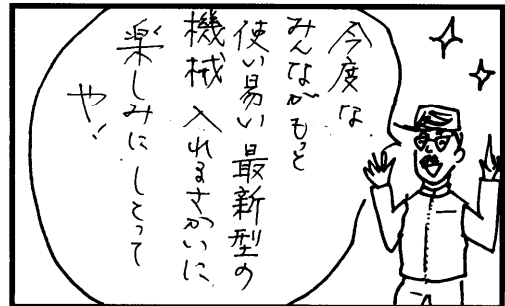 今度な
みんながもっと
使い易い最新型の
機械 入れるさかいに
楽しみにしとって
や!